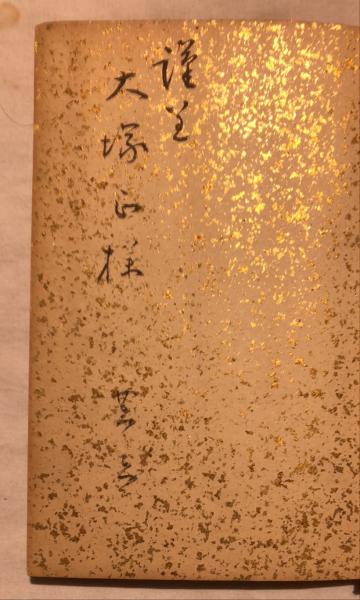 謹呈
大塚正様